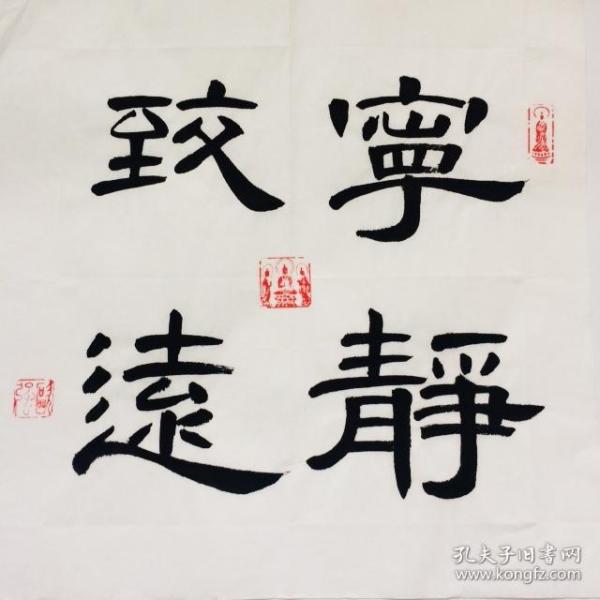 寧靜
致遠
孔夫子旧书网
www.kongfz.com